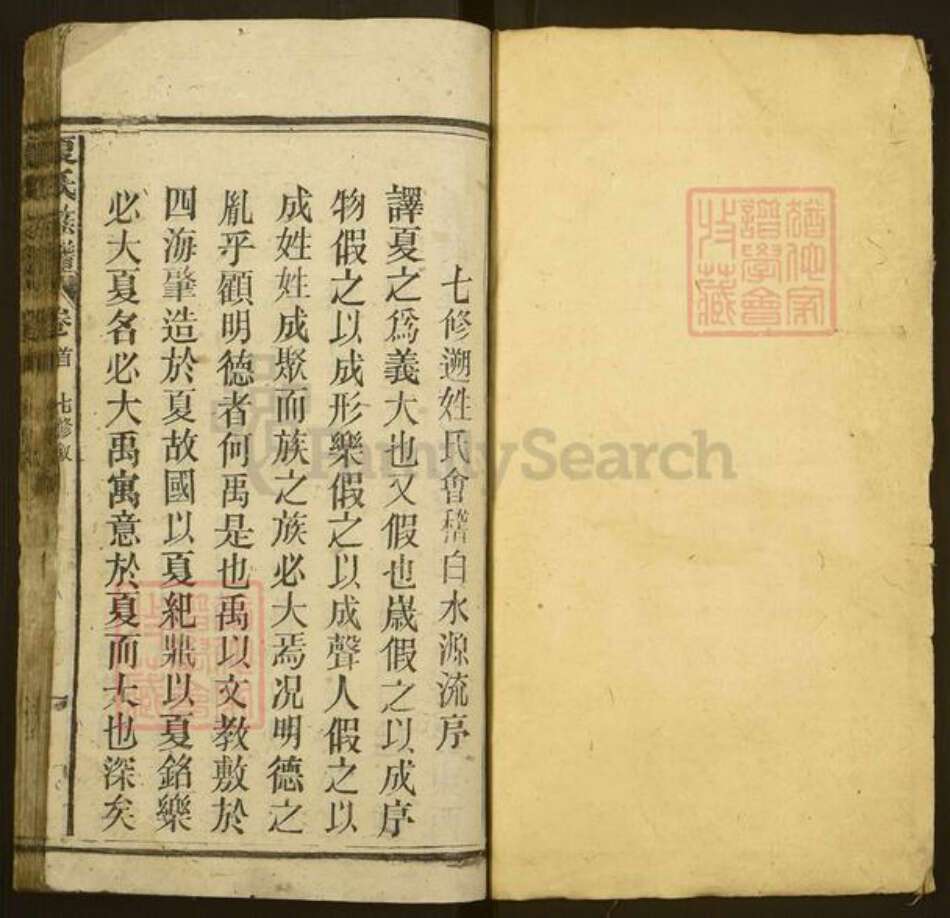 七修遡姓氏會稽白水源流序
譯夏之爲義大也又假也嵗假之以成序
物假之以成形樂假之以成聲人假之以
成姓姓成聚而族之族必大焉况明德之
胤乎顧明德者何禹是也禹以文教敷於
四海肇造於夏故國以夏紀鼎以夏銘樂
必大夏名必大禹寓意於夏而大也深矣
夏氏族譜
卷首
七修敘
譜學會
收藏
FamilySearch